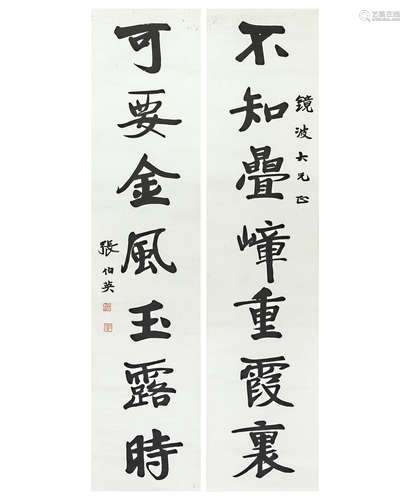 不知疊嶂重霞裏
鏡波大兄正
可要金風玉露時
張伯英